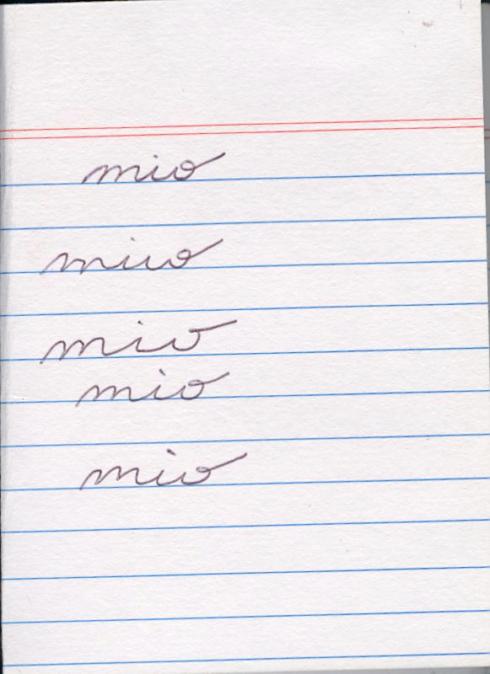 mio
mio
mio
mio
mio